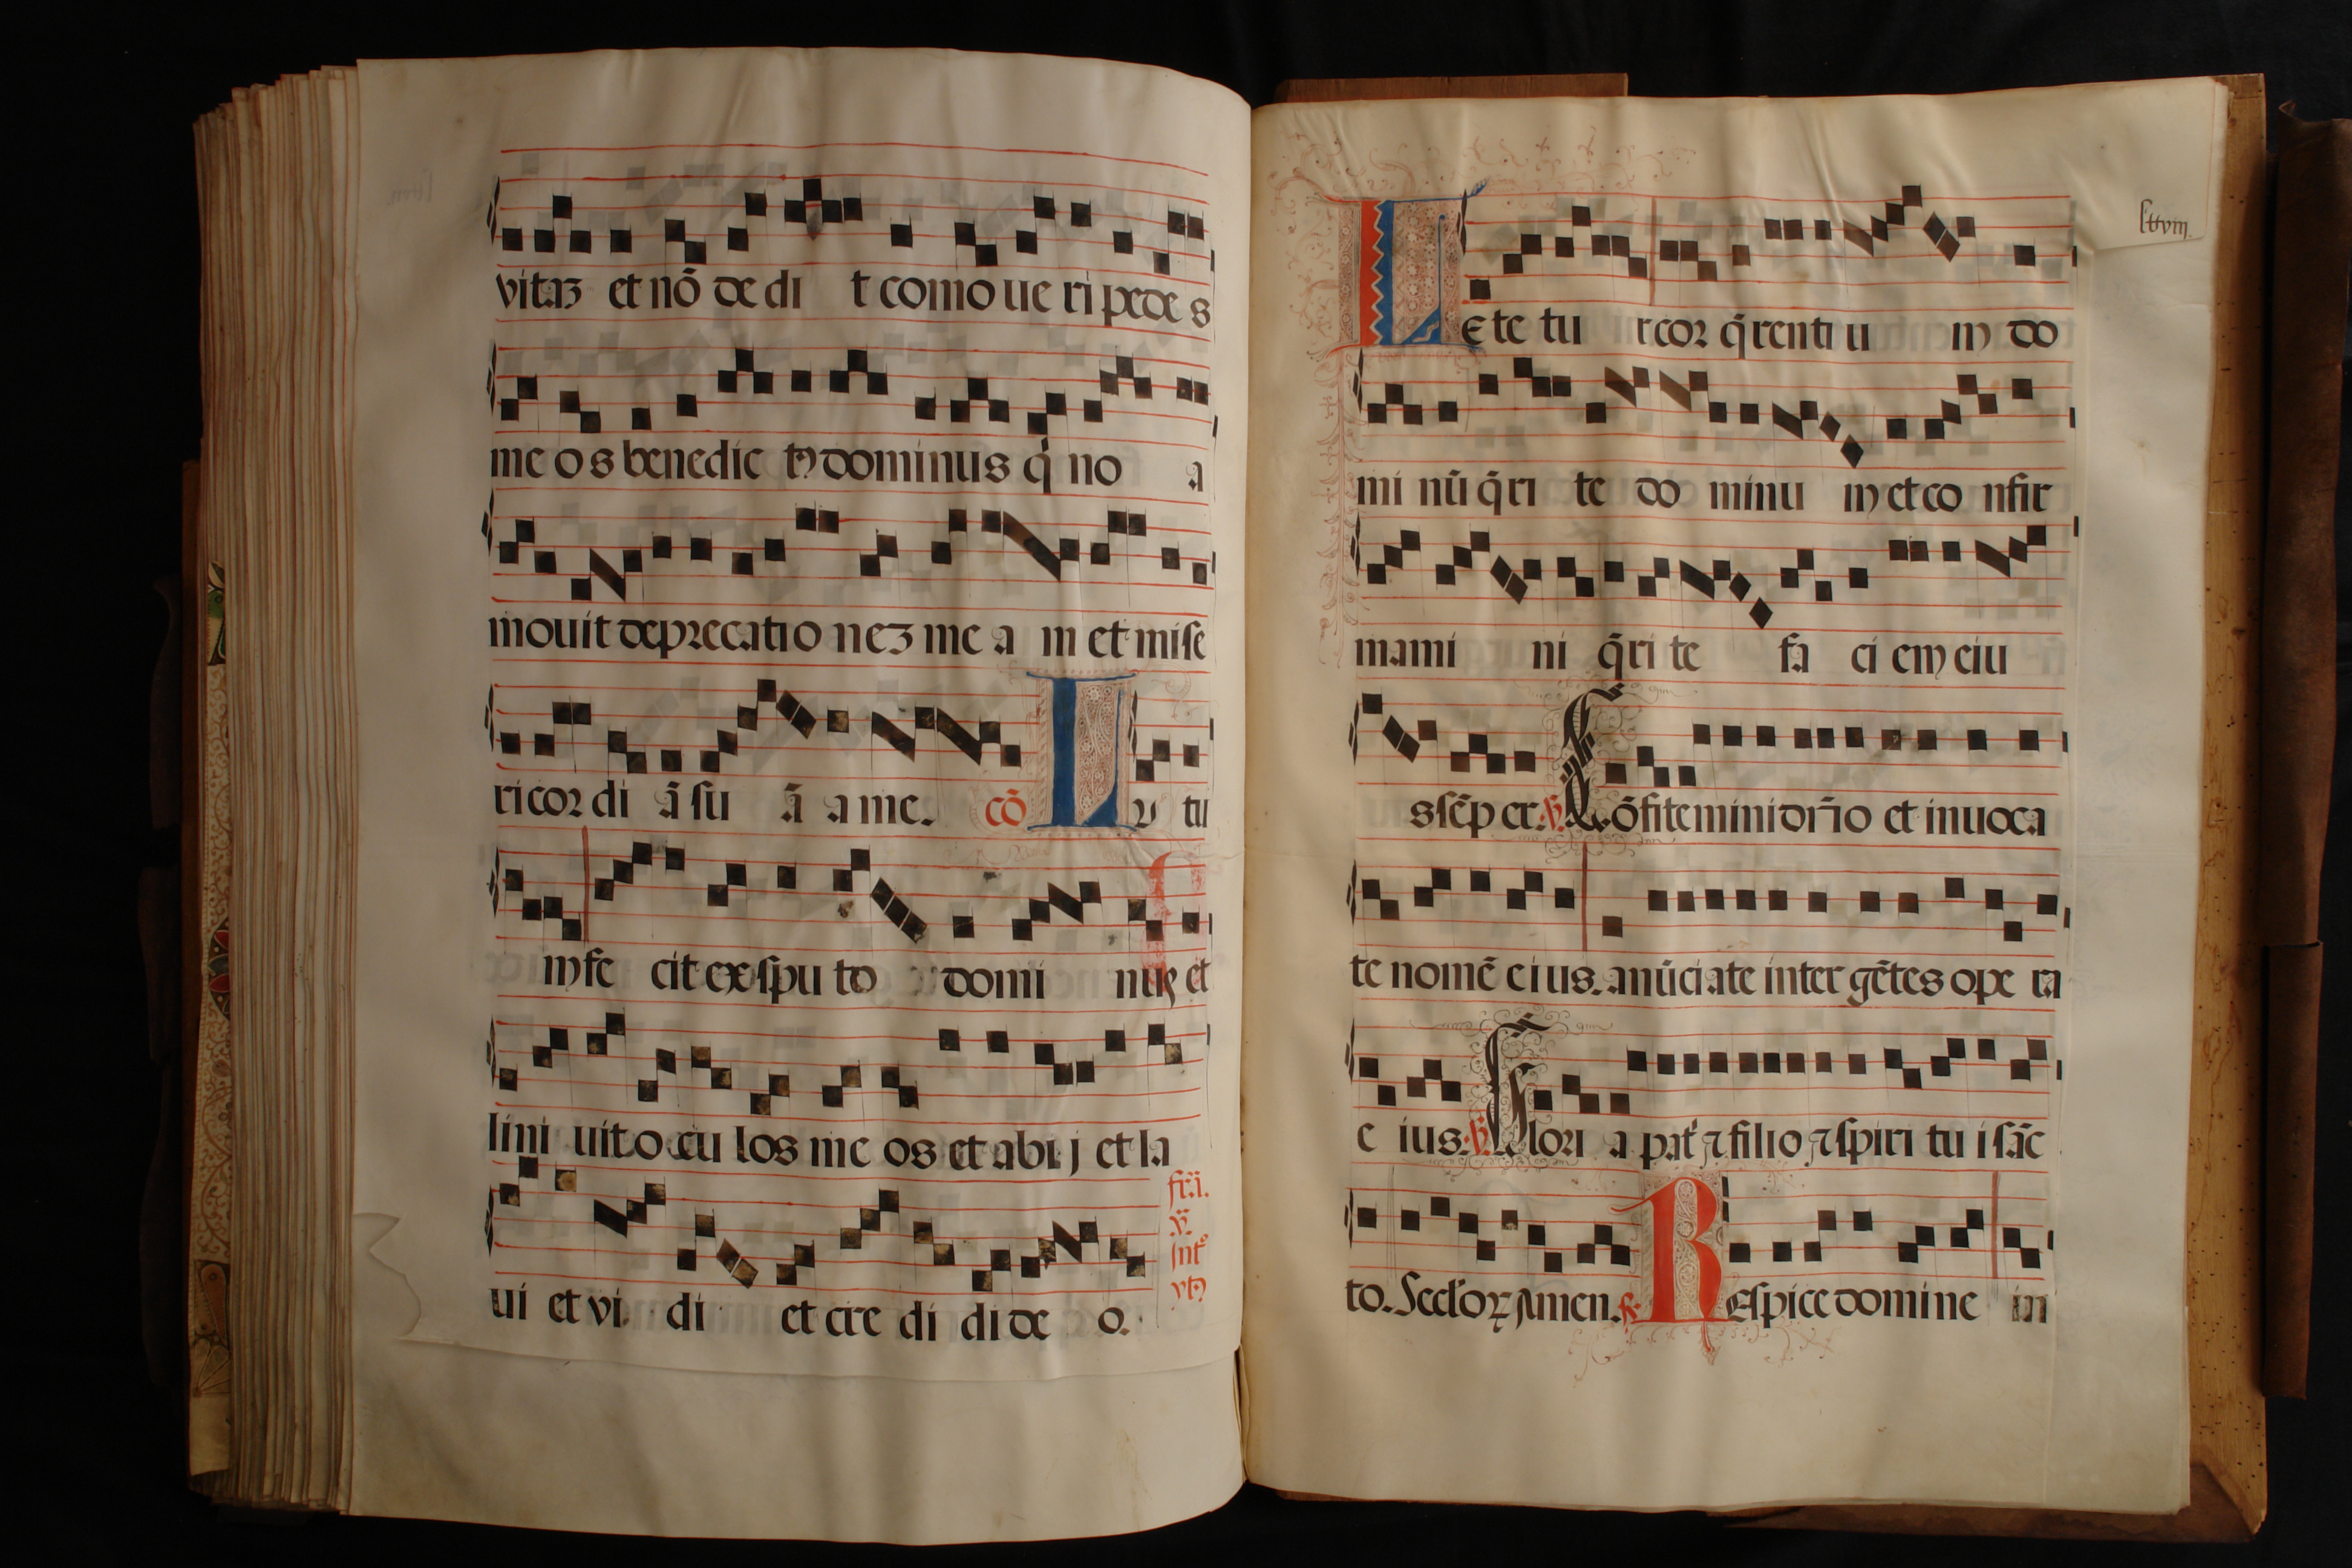 vitaʒ et nō de di t como ue ri pede s
me o s benedic tꝰ dominus q̇ no a
mouit deprecatio neʒ me a m et mise
ricor di ā su ā a me. cō L u tu
m fe cit ex spu to domi nus et
lini uit o cu los me os et abi j et la
ui et vi di et cre di di de o.
fr̄i.
L E te tu r cor q̄renti u m do
mi nū q̄ri te do minu m et co nfir
mami ni q̄ri te fa ci em eiu
s sēp er. ℣. Cōfitemini dn̄o et inuoca
te nomē eius. anūciate inter gētes ope ra
e ius. ℣. Glori a pat̄ ⁊ filio ⁊ spiri tu i sāc
to. Seclo⁊ꝝ amen. R Espice domine in